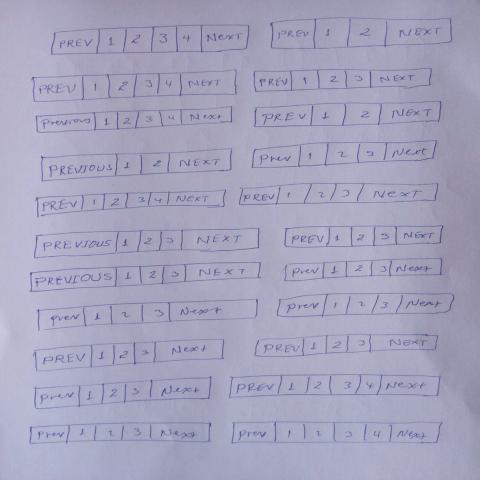 PREV 1 2 3 4 Next PREV 1 2 NEXT
PREV 1 2 3 4 NEXT PREV 1 2 3 NEXT
Previous 1 2 3 4 Next PREV 1 2 NEXT
PREVIOUS 1 2 NEXT Prev 1 2 3 Next
PREV 1 2 3 4 NEXT PREV 1 2 3 NEXT
PREVIOUS 1 2 3 NEXT PREV 1 2 3 NEXT
PREVIOUS 1 2 3 NEXT prev 1 2 3 Next
prev 1 2 3 Next prev 1 2 3 Next
PREV 1 2 3 Next PREV 1 2 3 NEXT
prev 1 2 3 Next PREV 1 2 3 4 Next
Prev 1 2 3 Next Prev 1 2 3 4 Next